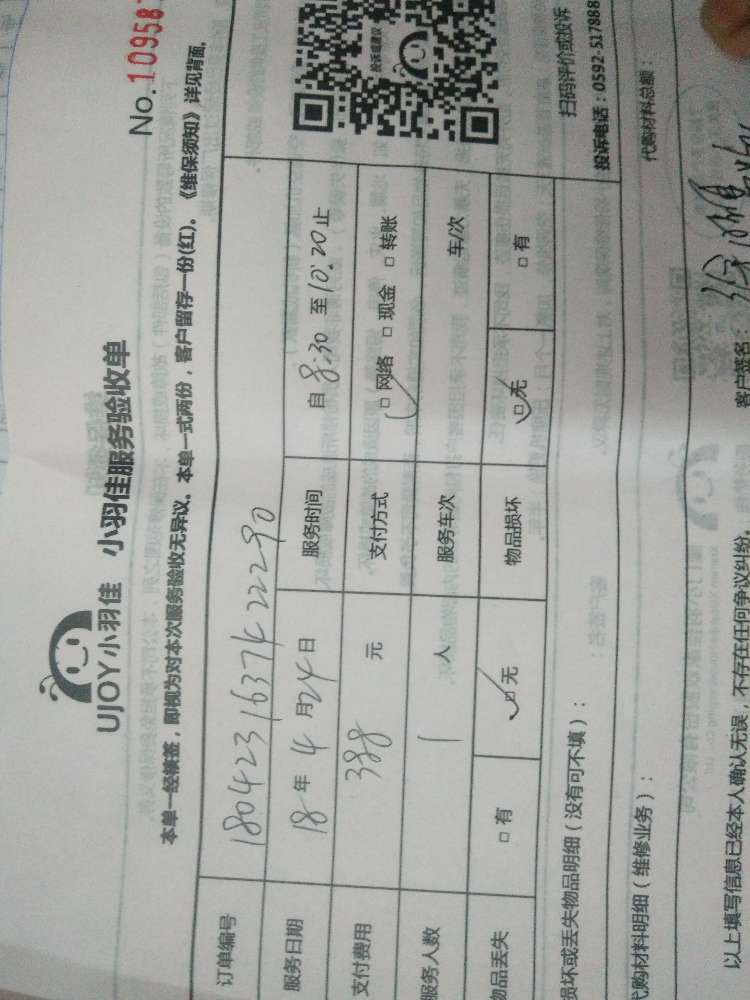 UJOY小羽佳 小羽佳服务验收单
No.10958
本单一经核签，即视为对本次服务验收无异议。本单一式两份，客户留存一份(红)。《维保须知》详见背面。
订单编号 180423163742 22290
服务日期 18年4月24日 服务时间 自8:30至10:20止
支付费用 388元 支付方式 □网络 □现金 □转账
服务人数 1人 服务车次 车/次
物品丢失 □有 □无 物品损坏 □无 □有
投诉或建议
扫码评价或投诉
投诉电话：0592-517888
损坏或丢失物品明细（没有可不填）：
代购材料明细（维修业务）：
代购材料总额：
以上填写信息已经本人确认无误，不存在任何争议纠纷。
客户签名：